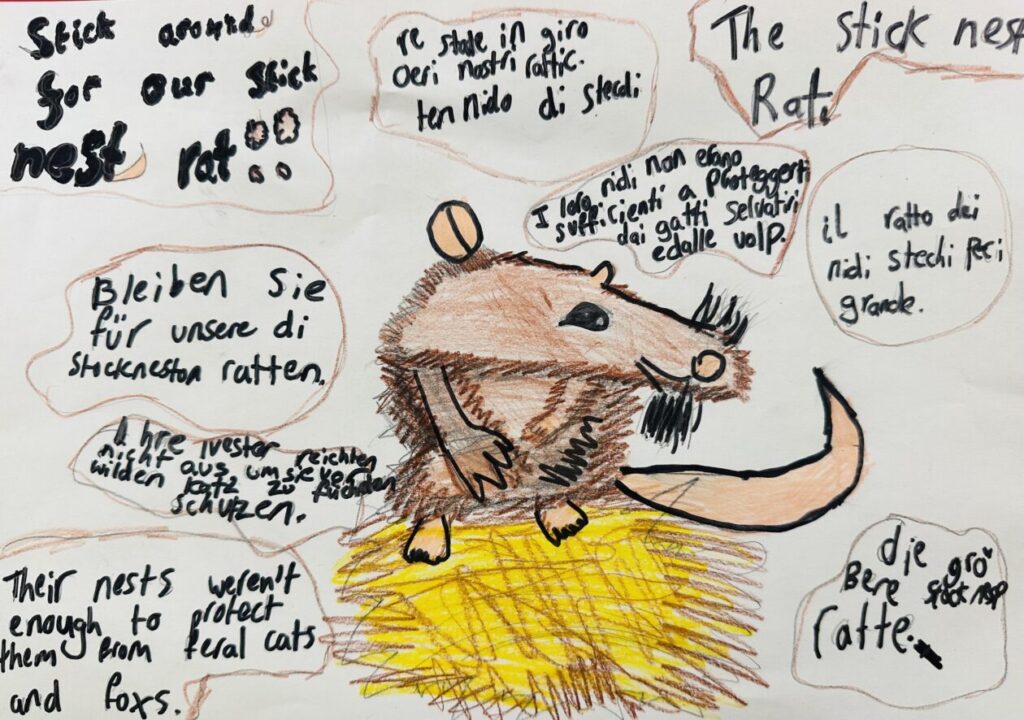 Stick around
for our stick
nest rat!!
re state in giro
peri nostri rattic.
ten nido di stecdi
The stick nest
Rat.
I loro nidi non erano
sufficienti a proteggerti
dai gatti selvatiri
edalle volp.
il ratto dei
nidi stechi peci
grande.
Bleiben Sie
für unsere di
Stockneston ratten.
reichten
nicht aus um sie vor
wilden katz zu
schutzen.
Their nests weren't
enough to protect
them from feral cats
and foxs.
die grö
Bere
ratte.